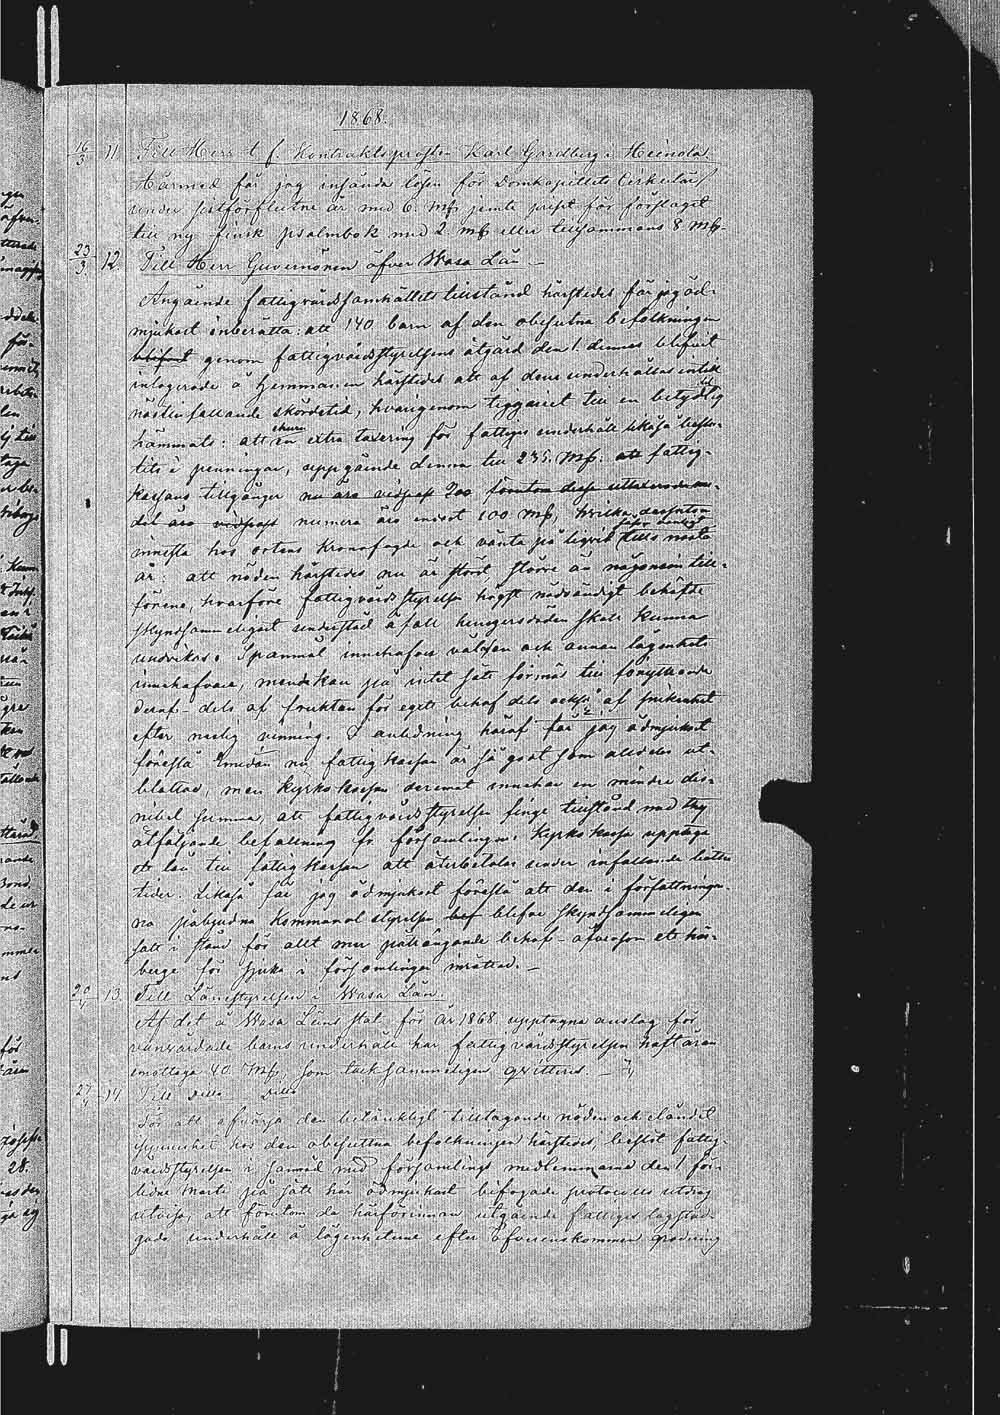 1868.
16/3 11. Till Herr t. f. Kontraktsprosten Karl Gardberg i Heinola.
Härmed får jag insända lösen för Domkapitlets Cirkulär
under sistförflutne år med 6. mk jemte pris för förslaget
till ny finsk psalmbok med 2 mk eller tillsammans 8 mk.
23/3 12. Till Herr Guvernören öfver Wasa Län.
Angående fattigvårdssamhällets tillstånd härstedes får jag öd-
mjukast inberätta: att 140 barn af den obesutna befolkningen
blifvit genom fattigvårdsstyrelsens åtgärd den 1. dennes blifvit
inlogerade å Hemmanen härstedes att af dem underhållas intill
nästinfallande skördetid, hvarigenom tiggeriet till en betydlig del
hämmats: att en extra taxering för fattiges underhåll likaså beslu-
tits i penningar, uppgående denna till 235. mk: att fattig-
kassans tillgånger nu äro vidpass 200 förutom dessa uttaxerade me-
del äro vidpass numera äro endast 100 mk, hvilka dessutom
innestå hos ortens Kronofogde och vänta på liqvid tills nästa
år: att nöden härstedes nu är stord, större än någonsin till-
förene, hvarföre fattigvårdsstyrelsen högst nödvändigt behöfde
skyndsammeligast understöd ifall hungersdöden skall kunna
undvikas. Spanmål innehafves väl af en och annan lägenhets
innehafvare, men kan på intet sätt förmås till försyttrande
deraf - dels af fruktan för eget behof dels också af snikenhet
efter neslig vinning. I anledning häraf får jag ödmjukast
föreslå emedan nu fattigkassan är så godt som alldeles ut-
blottad, men kyrkokassan deremot innehar en mindre dis-
nibel summa, att fattigvårdsstyrelsen finge tillstånd med thy
åtföljande befallning fr. församlingens kyrkokassa upptaga
ett lån till fattigkassan att återbetalas under infallande bättre
tider. Likaså får jag ödmjukast föreslå att den i författninga-
na påbjudna Kommunal styrelsen bef blefve skyndsammeligen
satt i stånd för allt mer påträngande behof - äfvensom ett här-
berge för sjuka i församlingen inrättad.
20/4 13. Till Länestyrelsen i Wasa Län.
Af det å Wasa Läns stat för år 1868 upptagna anslag för
vanvårdade barns underhåll har fattigvårdsstyrelsen haft äran
emottaga 40 mk, som tacksammeligen qvitteras.
27/4 14. Till Ditto Ditto
För att afvärja den betänkligt tilltagande nöden och eländet
synnerhet hos den obesuttna befolkningen härstedes, beslöt fattig-
vårdsstyrelsen i samråd med församlings medlemmarna den 1 för-
lidne Martii på sätt här ödmjukast bifogade protocolls utdrag
utvisa, att förutom de härförinnan utgående fattiges lagstad-
gade underhåll å lägenheterne efter öfverenskommen gradering